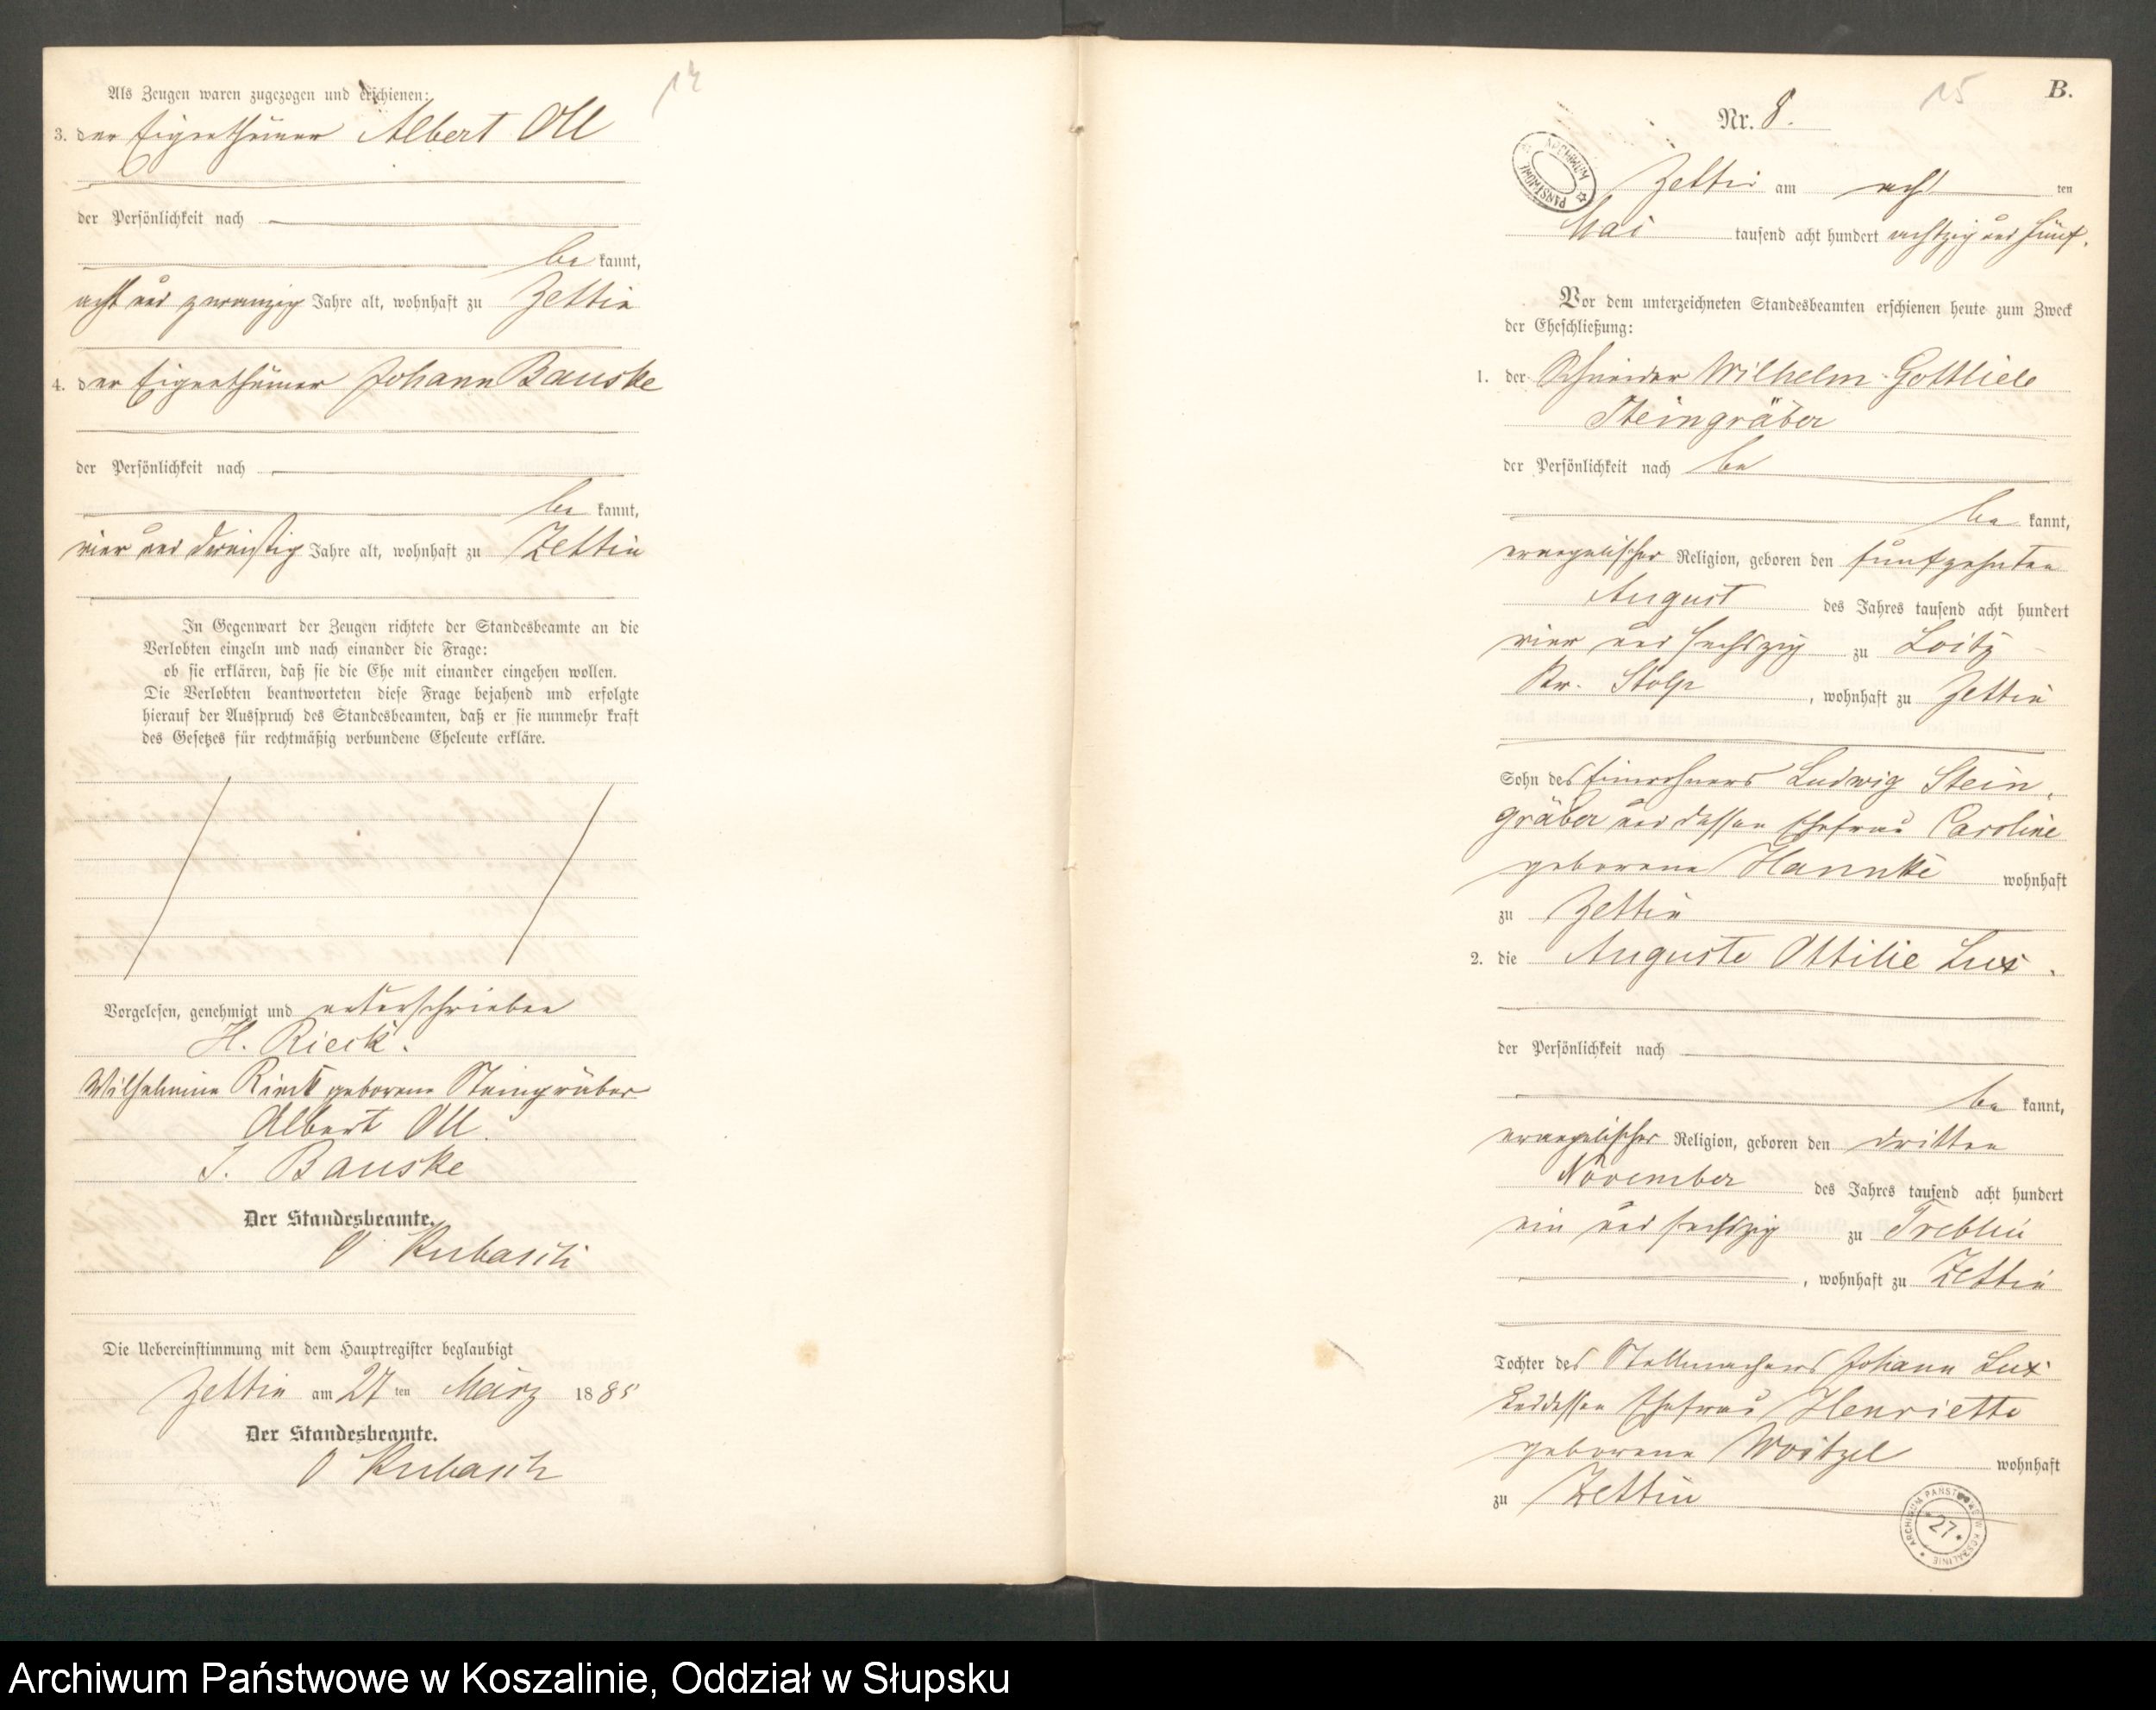 14
Als Zeugen waren zugezogen und erschienen:
3. der Eigenthümer Albert Oll
der Persönlichkeit nach
be kannt,
acht und zwanzig Jahre alt, wohnhaft zu Zettin
4. der Eigenthümer Johann Bauske
der Persönlichkeit nach
be kannt,
vier und dreißig Jahre alt, wohnhaft zu Zettin
In Gegenwart der Zeugen richtete der Standesbeamte an die
Verlobten einzeln und nach einander die Frage:
ob sie erklären, daß sie die Ehe mit einander eingehen wollen.
Die Verlobten beantworteten diese Frage bejahend und erfolgte
hierauf der Ausspruch des Standesbeamten, daß er sie nunmehr kraft
des Gesetzes für rechtmäßig verbundene Eheleute erkläre.
Vorgelesen, genehmigt und unterschrieben
H. Rieck.
Wilhelmine Rieck geborene Steingräber
Albert Oll.
J. Bauske
Der Standesbeamte.
Kubasch
Die Uebereinstimmung mit dem Hauptregister beglaubigt
Zettin am 27 ten März 1885
Der Standesbeamte.
Kubasch
15
B.
Nr. 8.
ARCHIWUM PAŃSTWOWE
Zettin am acht ten
Mai tausend acht hundert achtzig und fünf.
Vor dem unterzeichneten Standesbeamten erschienen heute zum Zweck
der Eheschließung:
1. der Schneider Wilhelm Gottlieb
Steingräber
der Persönlichkeit nach be
be kannt,
evangelischer Religion, geboren den fünfzehnten
August des Jahres tausend acht hundert
vier und sechszig zu Loitz
Kr. Stolp, wohnhaft zu Zettin
Sohn des Einwohners Ludwig Stein-
gräber und dessen Ehefrau Caroline
geborene Hannke wohnhaft
zu Zettin
2. die Auguste Ottilie Lux.
der Persönlichkeit nach
be kannt,
evangelischer Religion, geboren den dritten
November des Jahres tausend acht hundert
ein und sechszig zu Treblin
, wohnhaft zu Zettin
Tochter des Stellmachers Johann Lux
und dessen Ehefrau Henriette
geborene Woitzel wohnhaft
zu Zettin
ARCHIWUM PAŃSTWOWE W KOSZALINIE
27
Archiwum Państwowe w Koszalinie, Oddział w Słupsku